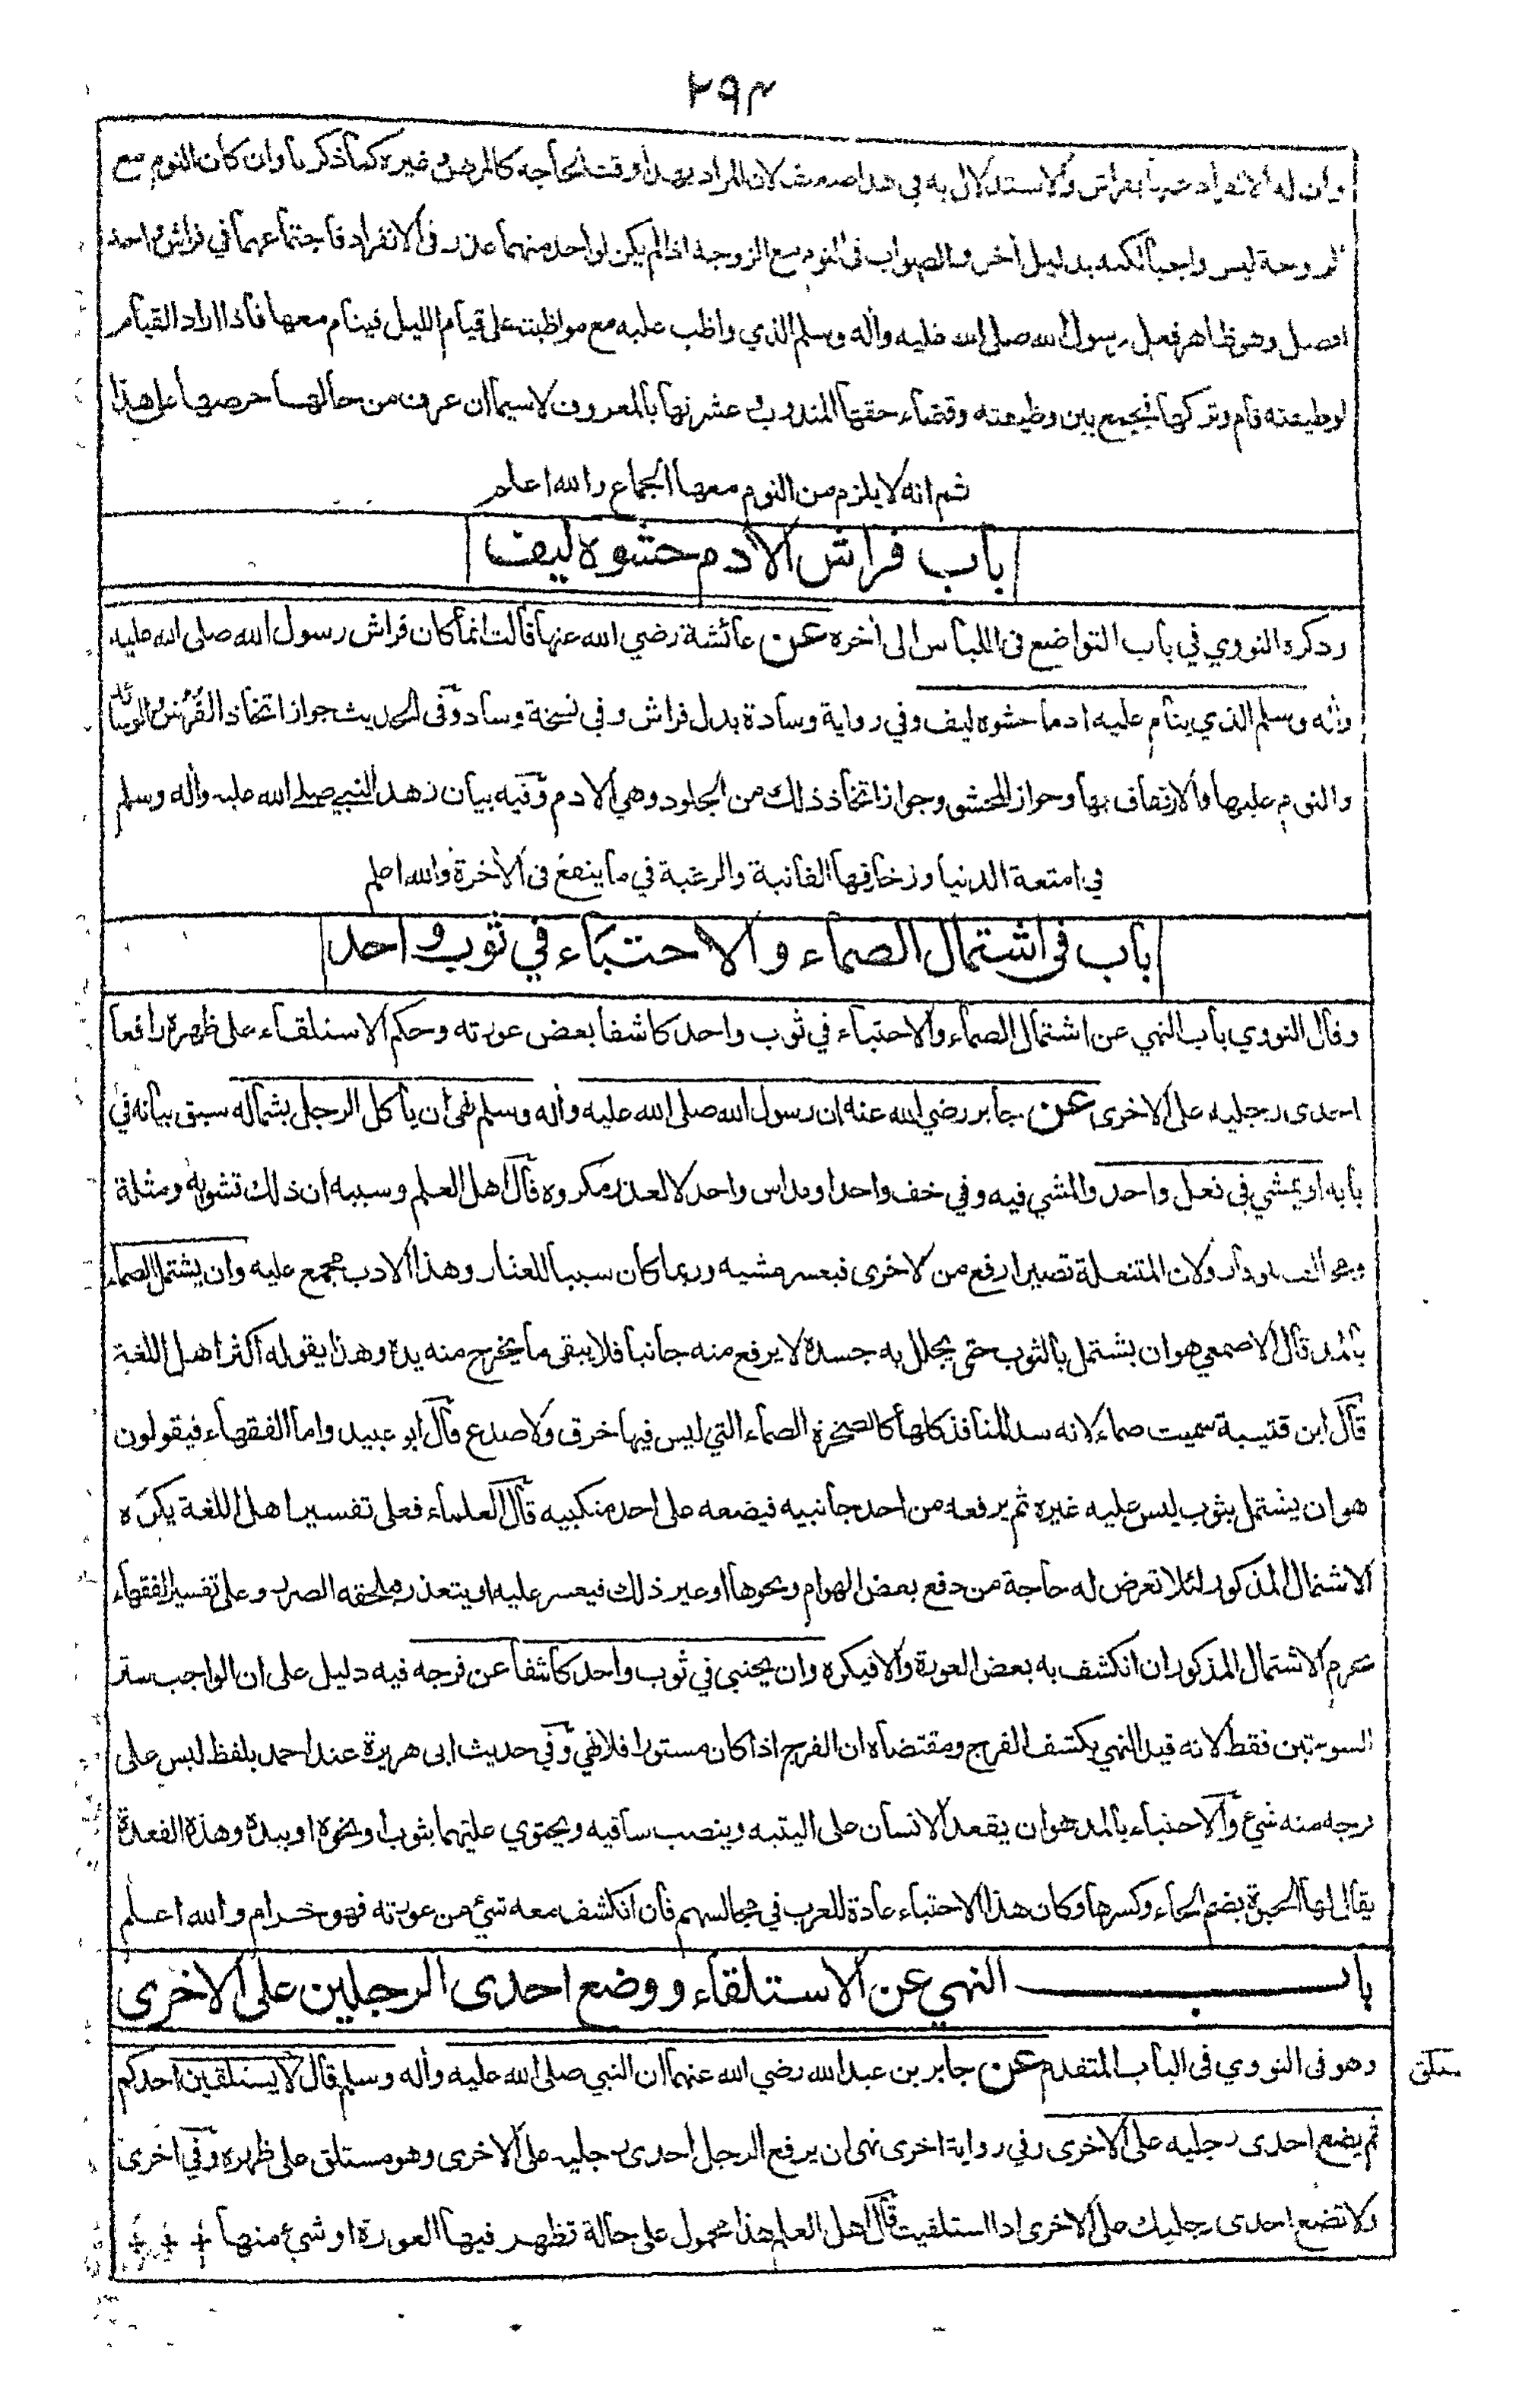 ٢٩٣
وان له الانفراد عنها بفراش والاستدلال به في هذا ضعيف لان المراد بهذا وقت الحاجة كالمرض وغيره كما ذكرنا وان كان النوم مع
الزوجة ليس واجبا لكنه بدليل أخر والصواب فى النوم مع الزوجة اذا لم يكن لواحد منهما عذر فى الانفراد فاجتماعهما في فراش واحد
افضل وهو ظاهر فعل رسول الله صلى الله عليه وأله وسلم الذي واظب عليه مع مواظبته على قيام الليل فينام معها فاذا اراد القيام
لوظيفته قام وتركها فيجمع بين وظيفته وقضاء حقها المندوب و عشرتها بالمعروف لاسيما ان عرف من حالها حرصها على هذا
ثم انه لا يلزم من النوم معها الجماع والله اعلم
باب فراش الادم حشوه ليف
وذكره النووي في باب التواضع فى اللباس الى أخره عن عائشة رضي الله عنها قالت انما كان فراش رسول الله صلى الله عليه
وأله وسلم الذي ينام عليه ادما حشوه ليف وفي رواية وسادة بدل فراش وفي نسخة وساد وفى الحديث جواز اتخاذ الفرش والوسائد
والنوم عليها والارتفاق بها وجواز المحشو وجواز اتخاذ ذلك من الجلود وهي الادم وفيه بيان زهد النبي صلى الله عليه وأله وسلم
في امتعة الدنيا وزخارفها الفانية والرغبة في ما ينفع فى الأخرة والله اعلم
باب فى اشتمال الصماء والاحتباء في ثوب واحد
وقال النووي باب النهي عن اشتمال الصماء والاحتباء في ثوب واحد كاشفا بعض عورته وحكم الاستلقاء على ظهره رافعا
احدى رجليه على الاخرى عن جابر رضي الله عنه ان رسول الله صلى الله عليه وأله وسلم نهى ان يأكل الرجل بشماله سبق بيانه في
بابه او يمشي فى نعل واحد والمشي فيه وفي خف واحد او مداس واحد لا لعذر مكروه قال اهل العلم وسببه ان ذلك تشويه ومثلة
ومخالف للوقار ولان المتنعلة تصير ارفع من الاخرى فيعسر مشيه وربما كان سببا للعثار وهذا الادب مجمع عليه وان يشتمل الصماء
بالمد قال الاصمعي هو ان يشتمل بالثوب حتى يجلل به جسده لا يرفع منه جانبا فلا يبقى ما يخرج منه يده وهذا يقوله اكثر اهل اللغة
قال ابن قتيبة سميت صماء لانه سد المنافذ كلها كالصخرة الصماء التي ليس فيها خرق ولا صدع قال ابو عبيد واما الفقهاء فيقولون
هو ان يشتمل بثوب ليس عليه غيره ثم يرفعه من احد جانبيه فيضعه على احد منكبيه قال العلماء فعلى تفسير اهل اللغة يكره
الاشتمال المذكور لئلا تعرض له حاجة من دفع بعض الهوام ونحوها او غير ذلك فيعسر عليه او يتعذر فيلحقه الضرر وعلى تفسير الفقهاء
يحرم الاشتمال المذكور ان انكشف به بعض العورة والا فيكره وان يحتبى في ثوب واحد كاشفا عن فرجه فيه دليل على ان الواجب ستر
السوءتين فقط لانه قيد النهي بكشف الفرج ومقتضاه ان الفرج اذا كان مستورا فلا نهي وفي حديث ابى هريرة عند احمد بلفظ ليس على
فرجه منه شيء والاحتباء بالمد هو ان يقعد الانسان على اليتيه وينصب ساقيه ويحتوي عليهما بثوب او نحوه او بيده وهذه القعدة
يقال لها الحبوة بضم الحاء وكسرها وكان هذا الاحتباء عادة للعرب في مجالسهم فان انكشف معه شيء من عورته فهو حرام والله اعلم
باب النهي عن الاستلقاء ووضع احدى الرجلين على الاخرى
وهو فى النووي فى الباب المتقدم عن جابر بن عبدالله رضي الله عنهما ان النبي صلى الله عليه وأله وسلم قال لا يستلقين احدكم
ثم يضع احدى رجليه على الاخرى وفي رواية اخرى نهى ان يرفع الرجل احدى رجليه على الاخرى وهو مستلق على ظهره وفي اخرى
ولا تضع احدى رجليك على الاخرى اذا استلقيت قال اهل العلم هذا محمول على حالة تظهر فيها العورة او شيء منها